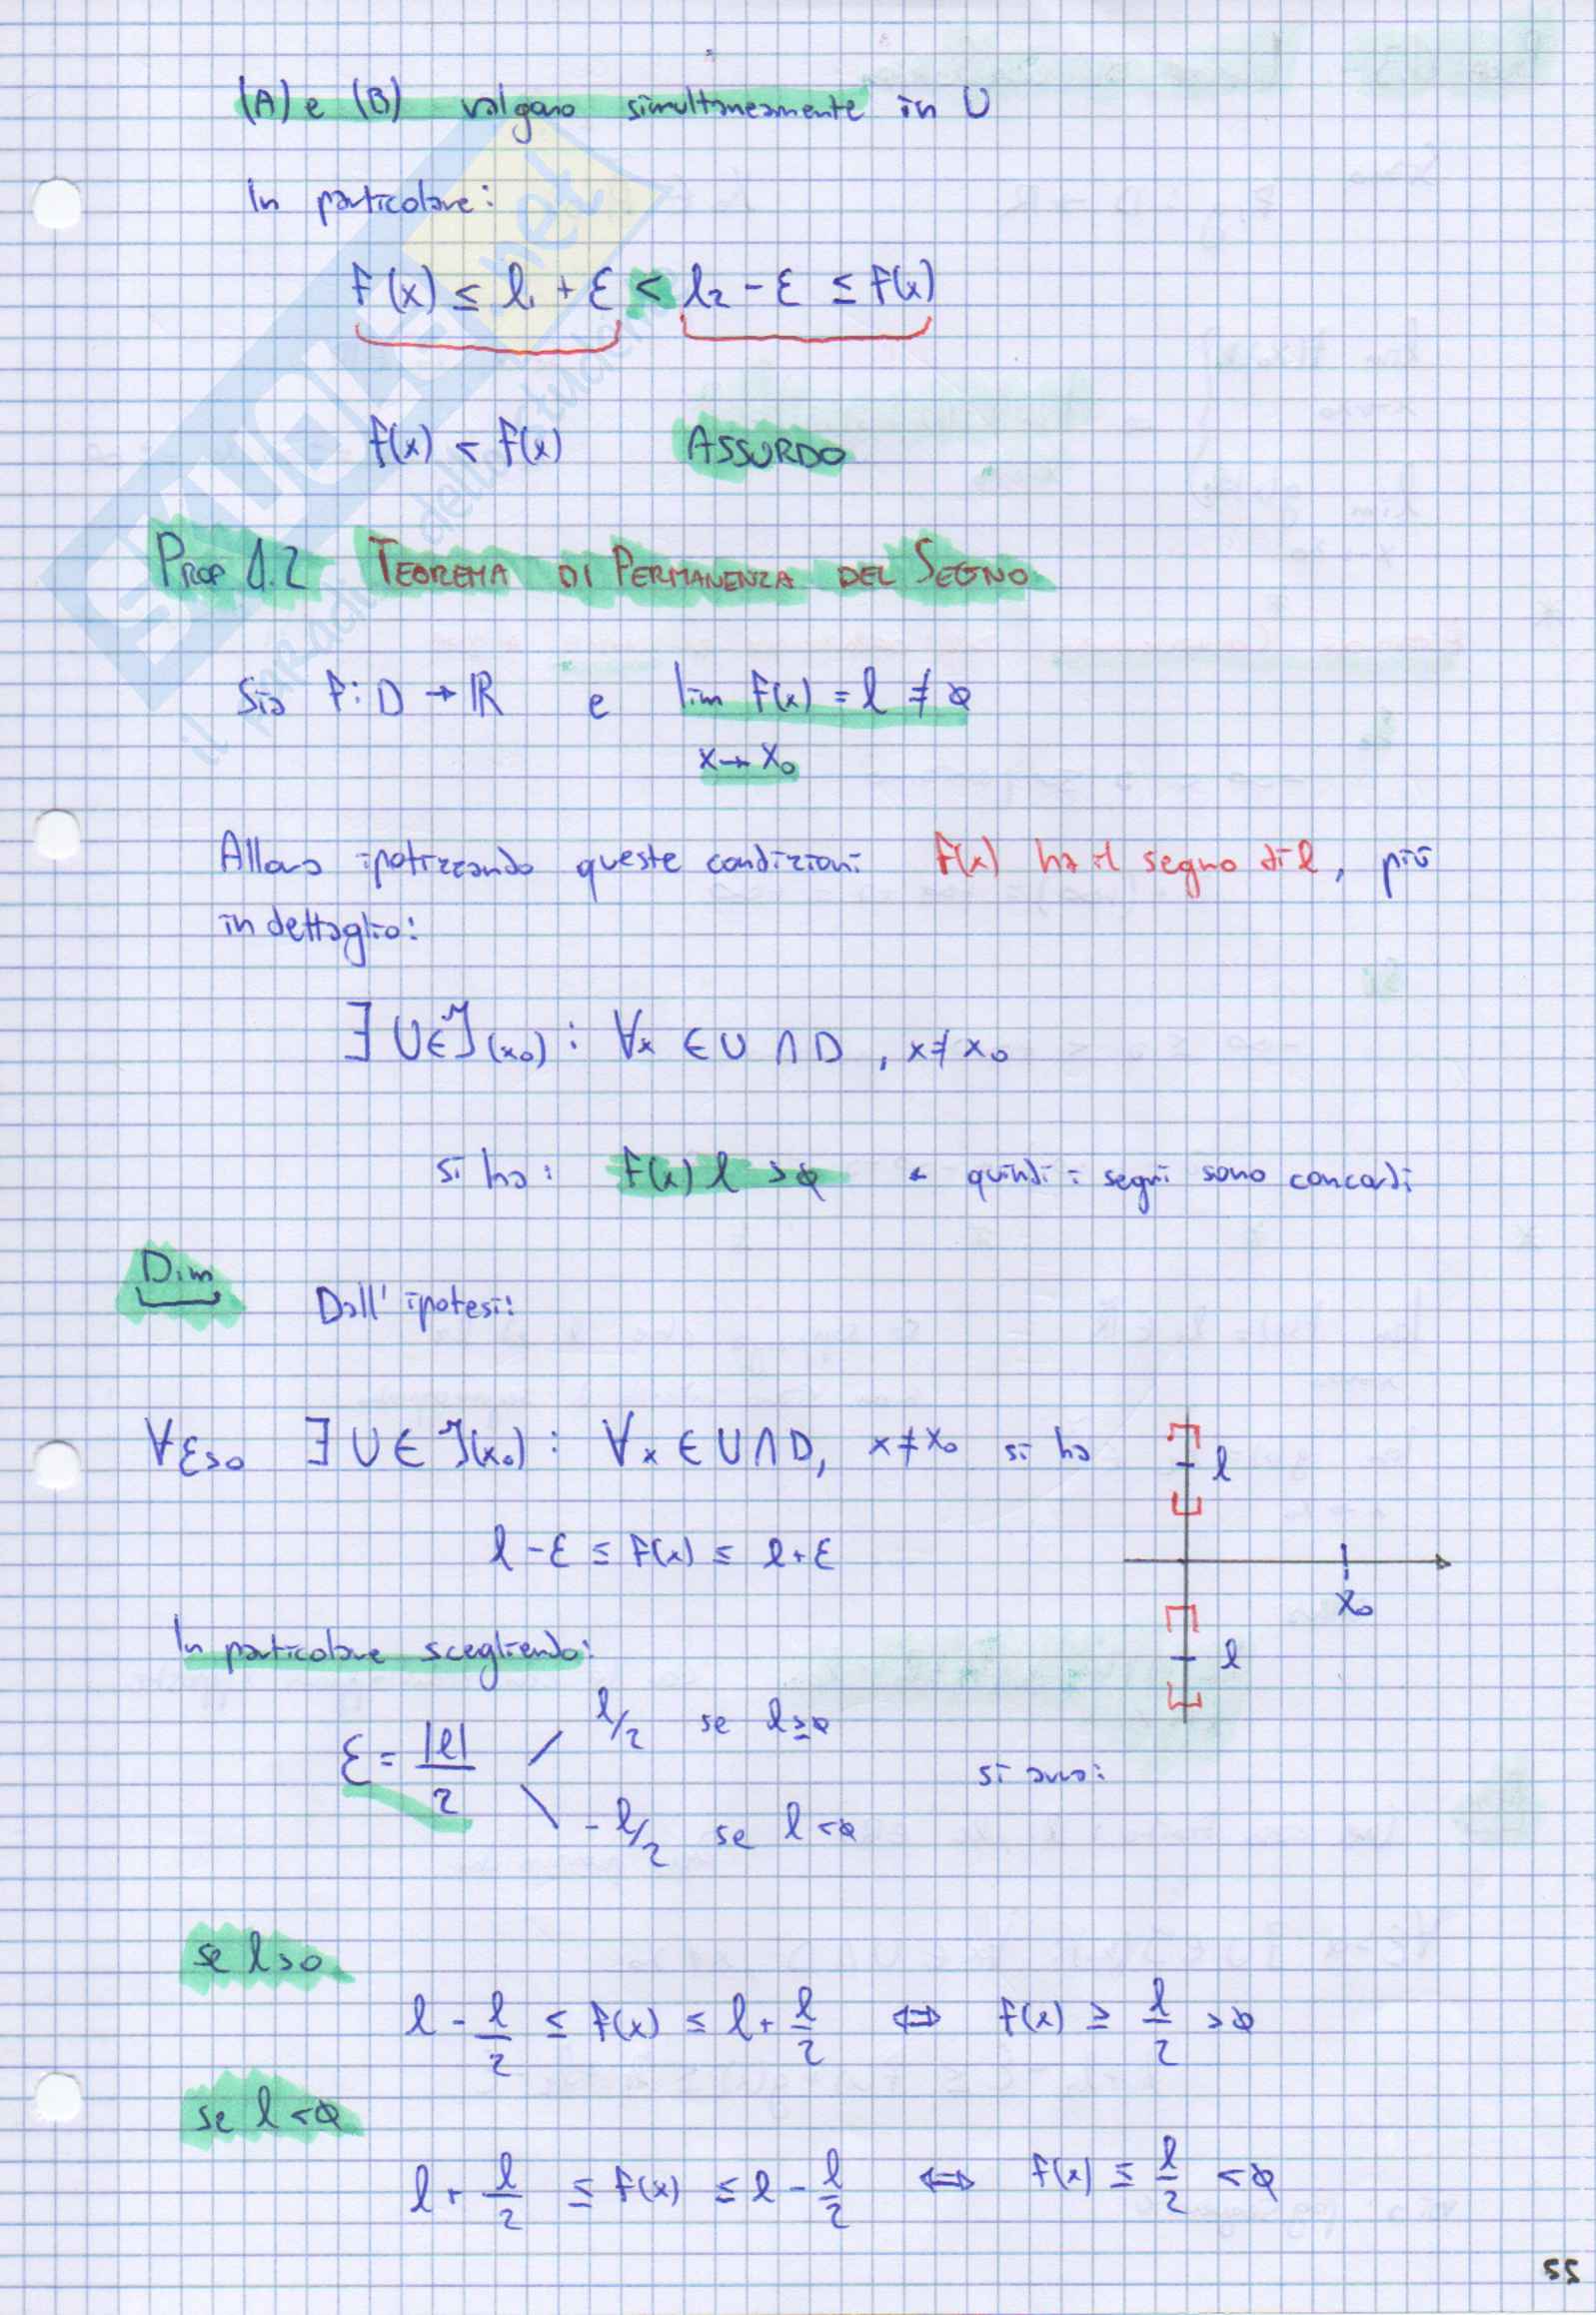 (A) e (B) valgono simultaneamente in U
In particolare:
F(x) ≤ l₁ + ε < l₂ - ε ≤ F(x)
F(x) < F(x) ASSURDO
PROP 1.2 TEOREMA DI PERMANENZA DEL SEGNO
Sia F: D → ℝ e lim F(x) = l ≠ 0
x → x₀
Allora ipotizzando queste condizioni F(x) ha il segno di l, più
in dettaglio:
∃ U ∈ ℐ(x₀) : ∀x ∈ U ∩ D, x ≠ x₀
si ha: F(x) l > 0 ← quindi i segni sono concordi
Dim Dall'ipotesi:
∀ε>0 ∃ U ∈ ℐ(x₀) : ∀x ∈ U ∩ D, x ≠ x₀ si ha
l
l - ε ≤ F(x) ≤ l + ε
x₀
In particolare scegliendo:
l
ε = |l|/2 l/2 se l ≥ 0
si avrà:
- l/2 se l < 0
se l > 0
l - l/2 ≤ F(x) ≤ l + l/2 ⟺ F(x) ≥ l/2 > 0
se l < 0
l + l/2 ≤ F(x) ≤ l - l/2 ⟺ F(x) ≤ l/2 < 0
55
SKUOLA.net
il paradiso dello studente